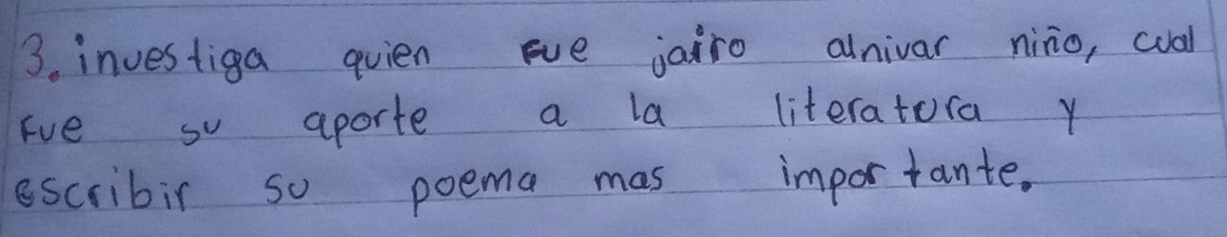 3. investiga quien fue jairo alnivar niño, cual
fue su aporte a la literatura y
escribir su poema mas importante.